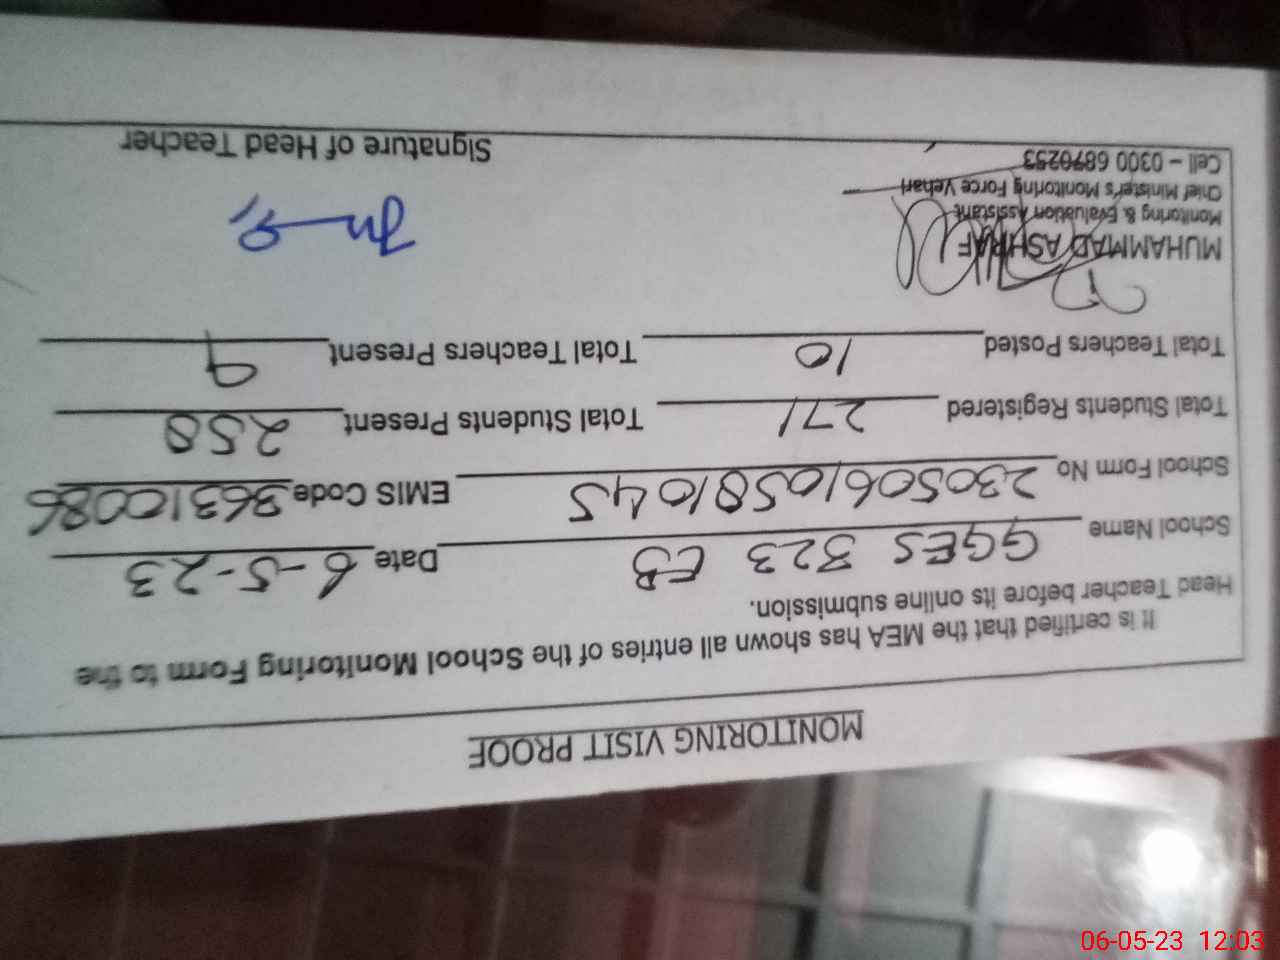 MONITORING VISIT PROOF
It is certified that the MEA has shown all entries of the School Monitoring Form to the
Head Teacher before its online submission.
School Name GGES 323 EB Date 6-5-23
School Form No 23050610581045 EMIS Code 36310086
Total Students Registered 271 Total Students Present 258
Total Teachers Posted 10 Total Teachers Present 9
MUHAMMAD ASHRAF
Monitoring & Evaluation Assistant
Chief Minister's Monitoring Force Vehari
Cell - 0300 6870253
Signature of Head Teacher
06-05-23 12:03